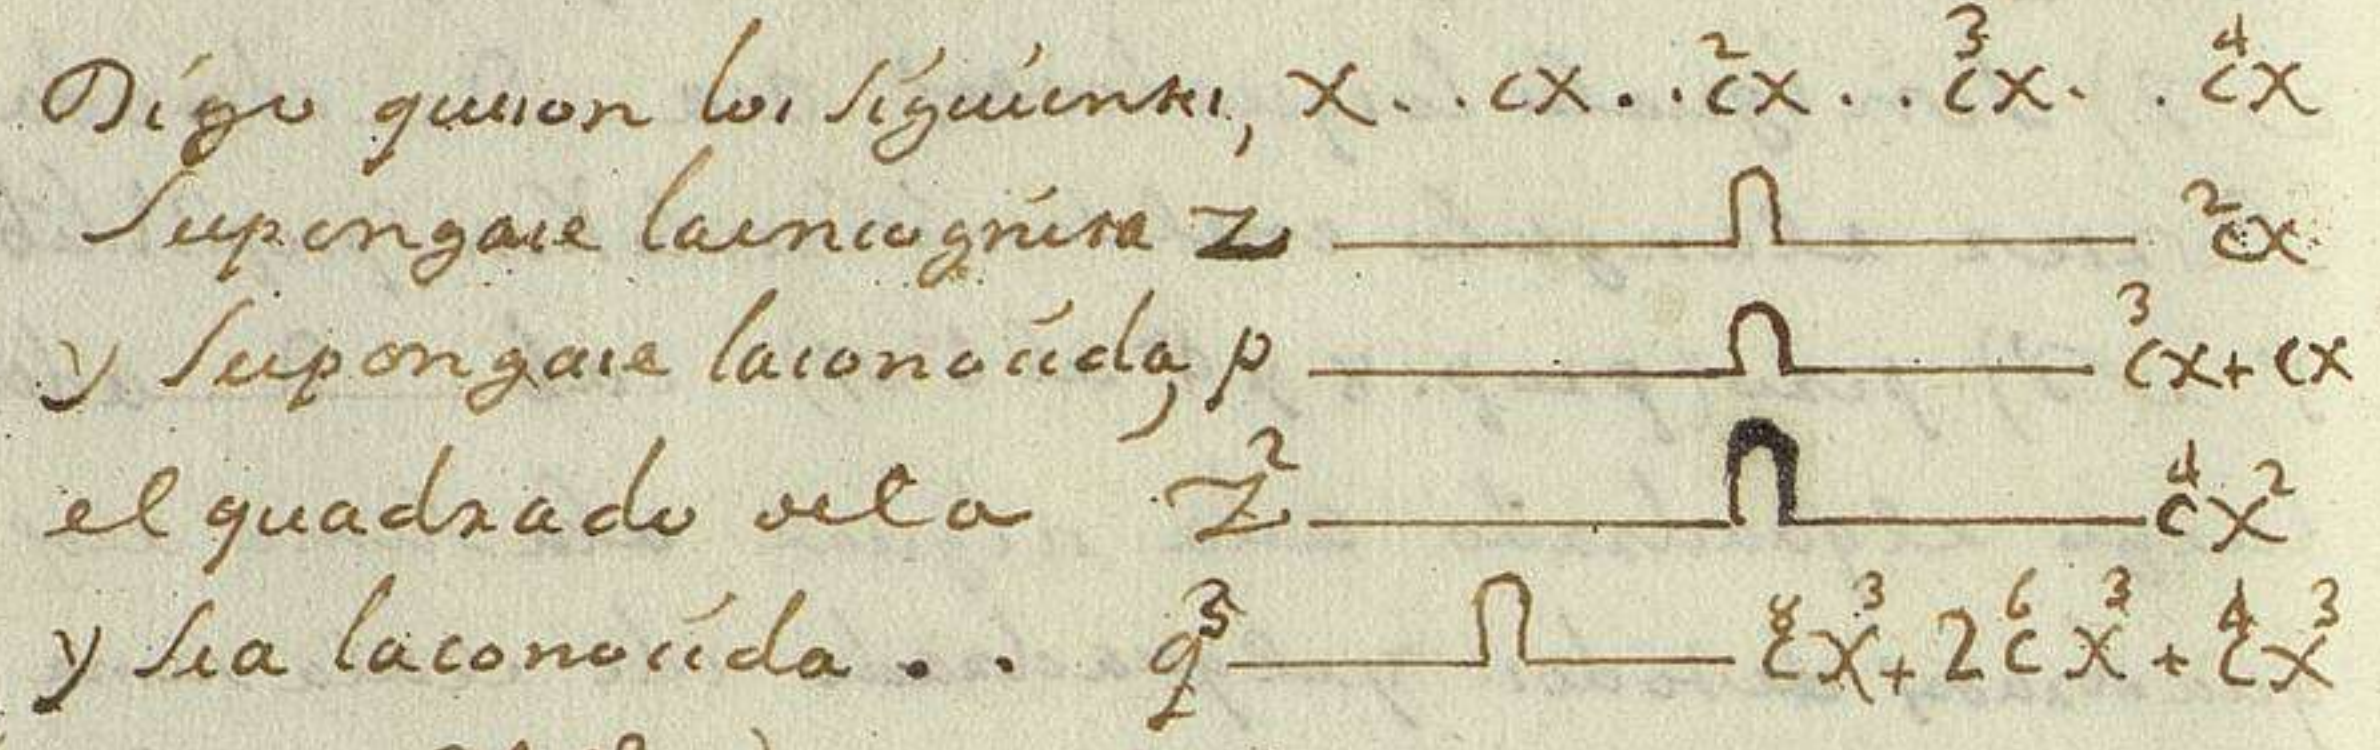 Digo que son los siguientes, x . . cx . . c²x . . c³x . . c⁴x
Supongase la incognita z ———∩——— c²x
y supongase la conocida, p ———∩——— c³x + cx
el quadrado de la z² ———∩——— c⁴x²
y sea la conocida . . q³ ———∩——— c⁸x³ + 2c⁶x³ + c⁴x³